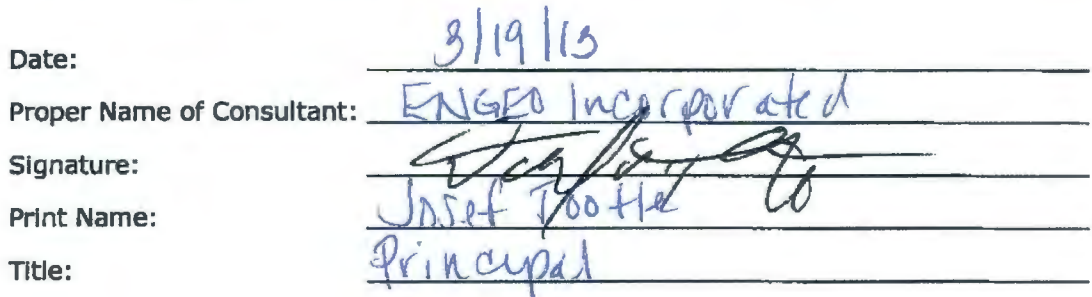 Date: 3/19/13
Proper Name of Consultant: ENGEO Incorporated
Signature:
Print Name: Josef Tootle
Title: Principal